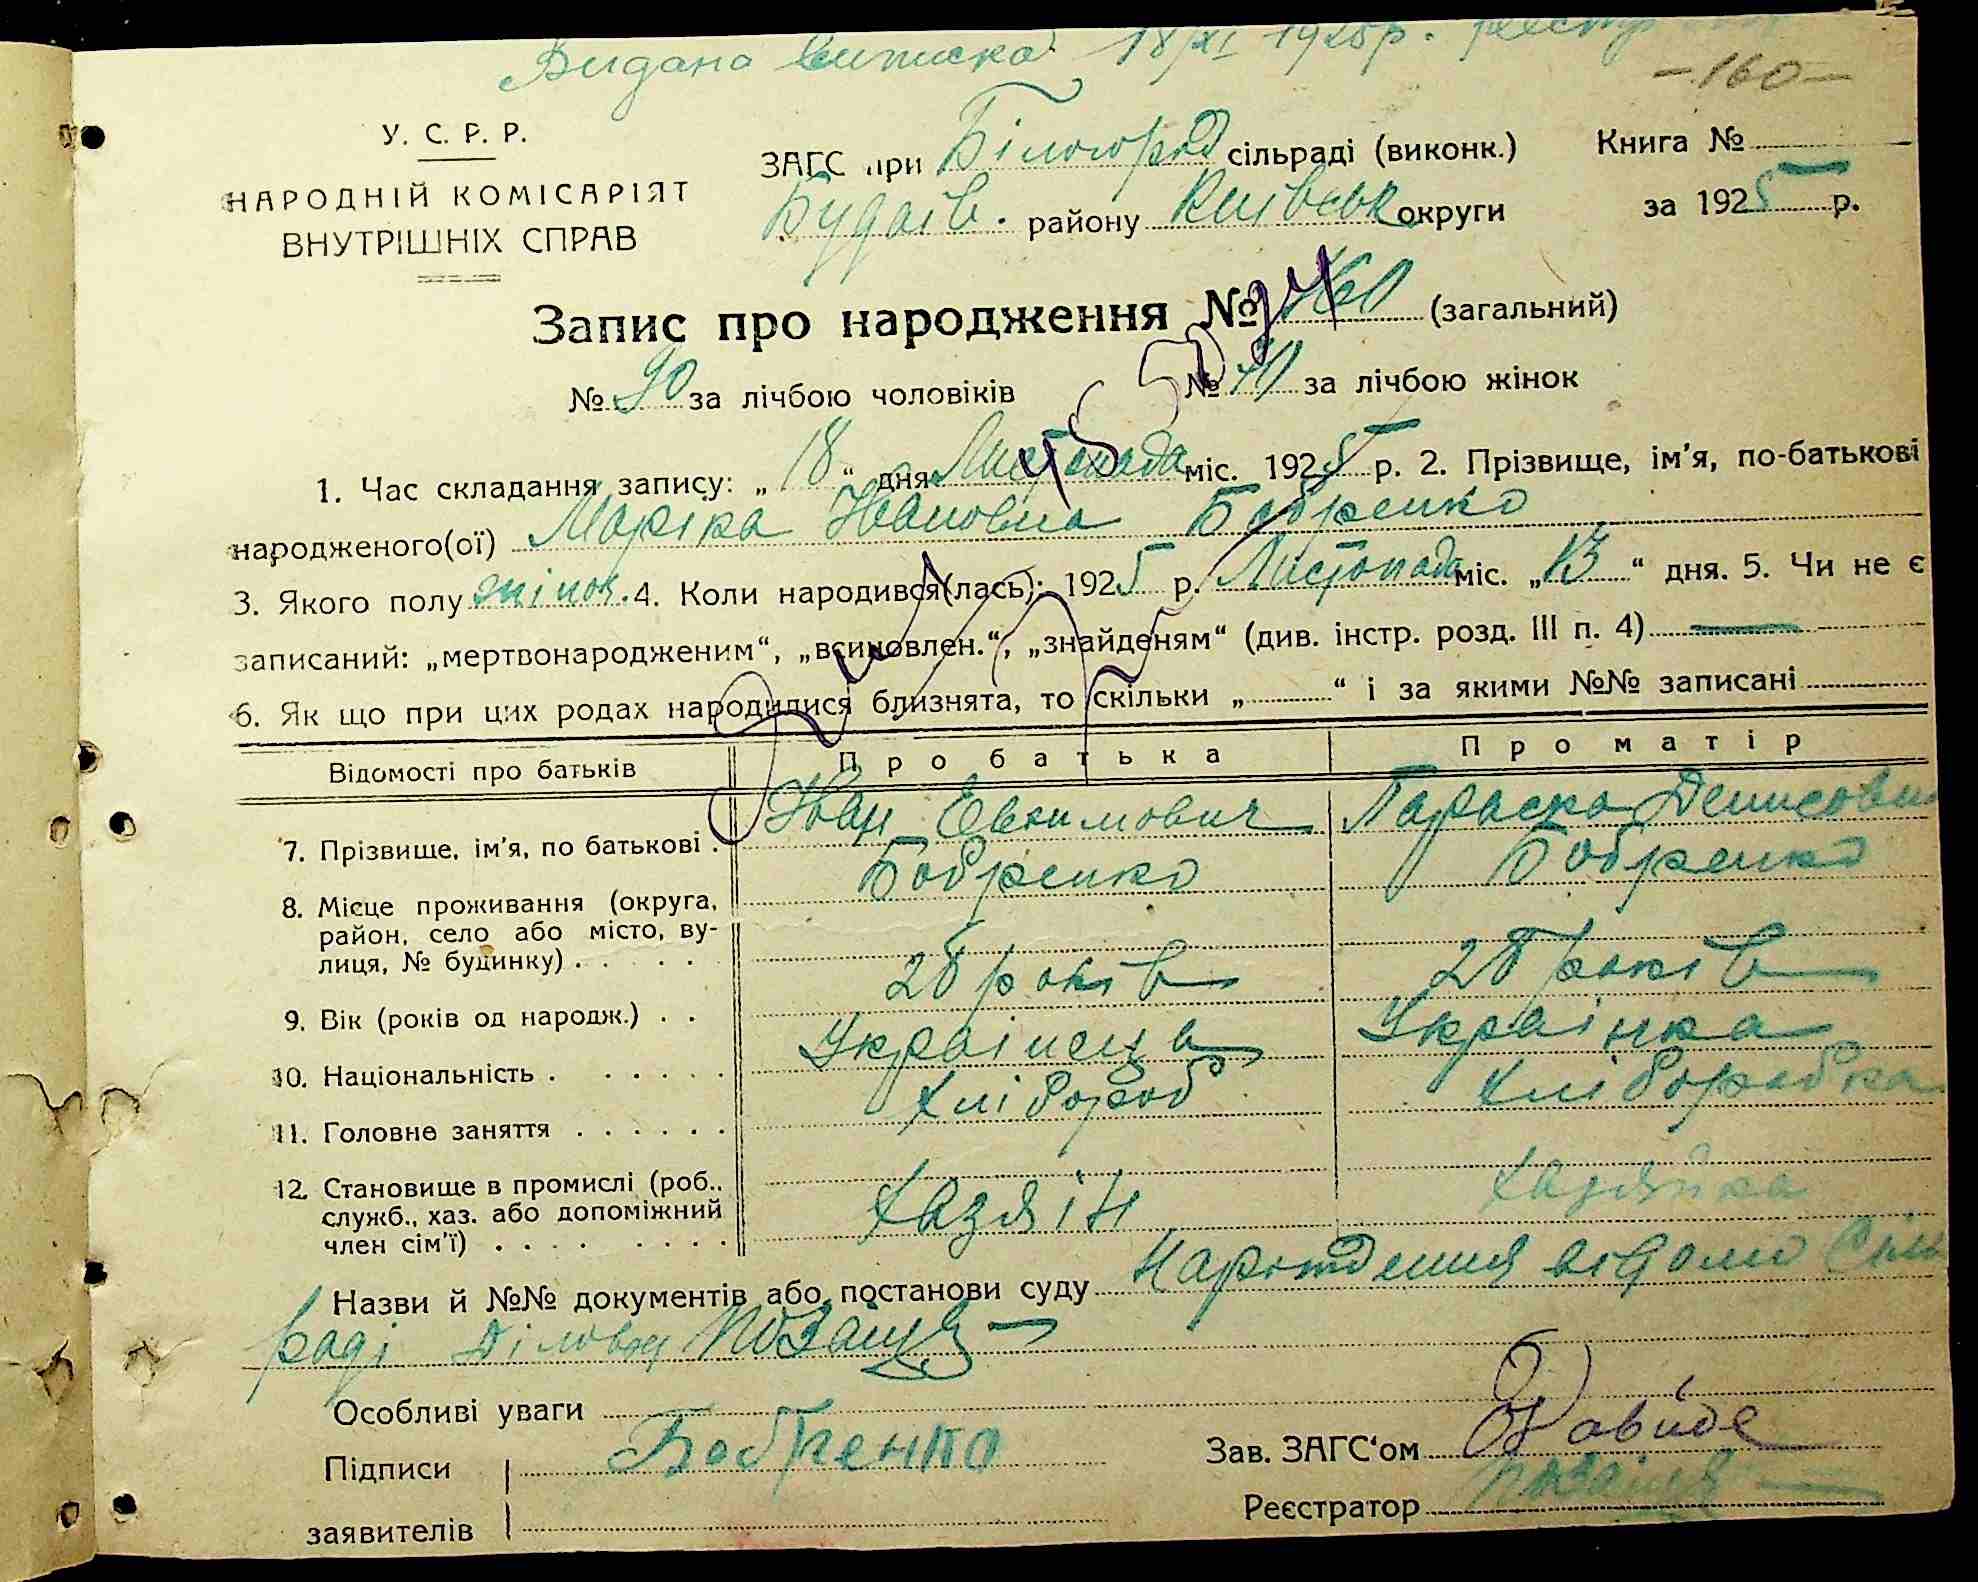 Видана Виписка 18/XI 1925р.
-160-
У. С. Р. Р.
НАРОДНІЙ КОМІСАРІЯТ
ВНУТРІШНІХ СПРАВ
ЗАГС при Білогород сільраді (виконк.) Книга №
Будаїв. району Київськ округи за 1925 р.
Запис про народження № 160 (загальний)
№ 90 за лічбою чоловіків № 70 за лічбою жінок
1. Час складання запису: „ 18 “ дня Листопада міс. 1925 р. 2. Прізвище, ім’я, по-батькові
народженого(ої) Маріка Івановна Бобренко
3. Якого полу жіноч. 4. Коли народився(лась): 1925 р. Листопада міс. „ 13 “ дня. 5. Чи не є
записаний: „мертвонародженим“, „всиновлен.“, „знайденям“ (див. інстр. розд. III п. 4) —
6. Як що при цих родах народилися близнята, то скільки „ “ і за якими №№ записані
Відомості про батьків Про батька Про матір
7. Прізвище, ім’я, по батькові . Іван Евкимович Бобренко Параска Денисовна Бобренко
8. Місце проживання (округа,
район, село або місто, ву-
лиця, № будинку) . . . . .
9. Вік (років од народж.) . . 25 років 25 років
10. Національність . . . . . . Українець Українка
11. Головне заняття . . . . . . Хлібороб Хліборобка
12. Становище в промислі (роб.,
служб., хаз. або допоміжний
член сім’ї) . . . . . . . . Хазяін Хазяйка
Назви й №№ документів або постанови суду Народження відомо Сіль
раді Діловод
Особливі уваги
Підписи Бобренко Зав. ЗАГС‘ом
заявителів Реєстратор